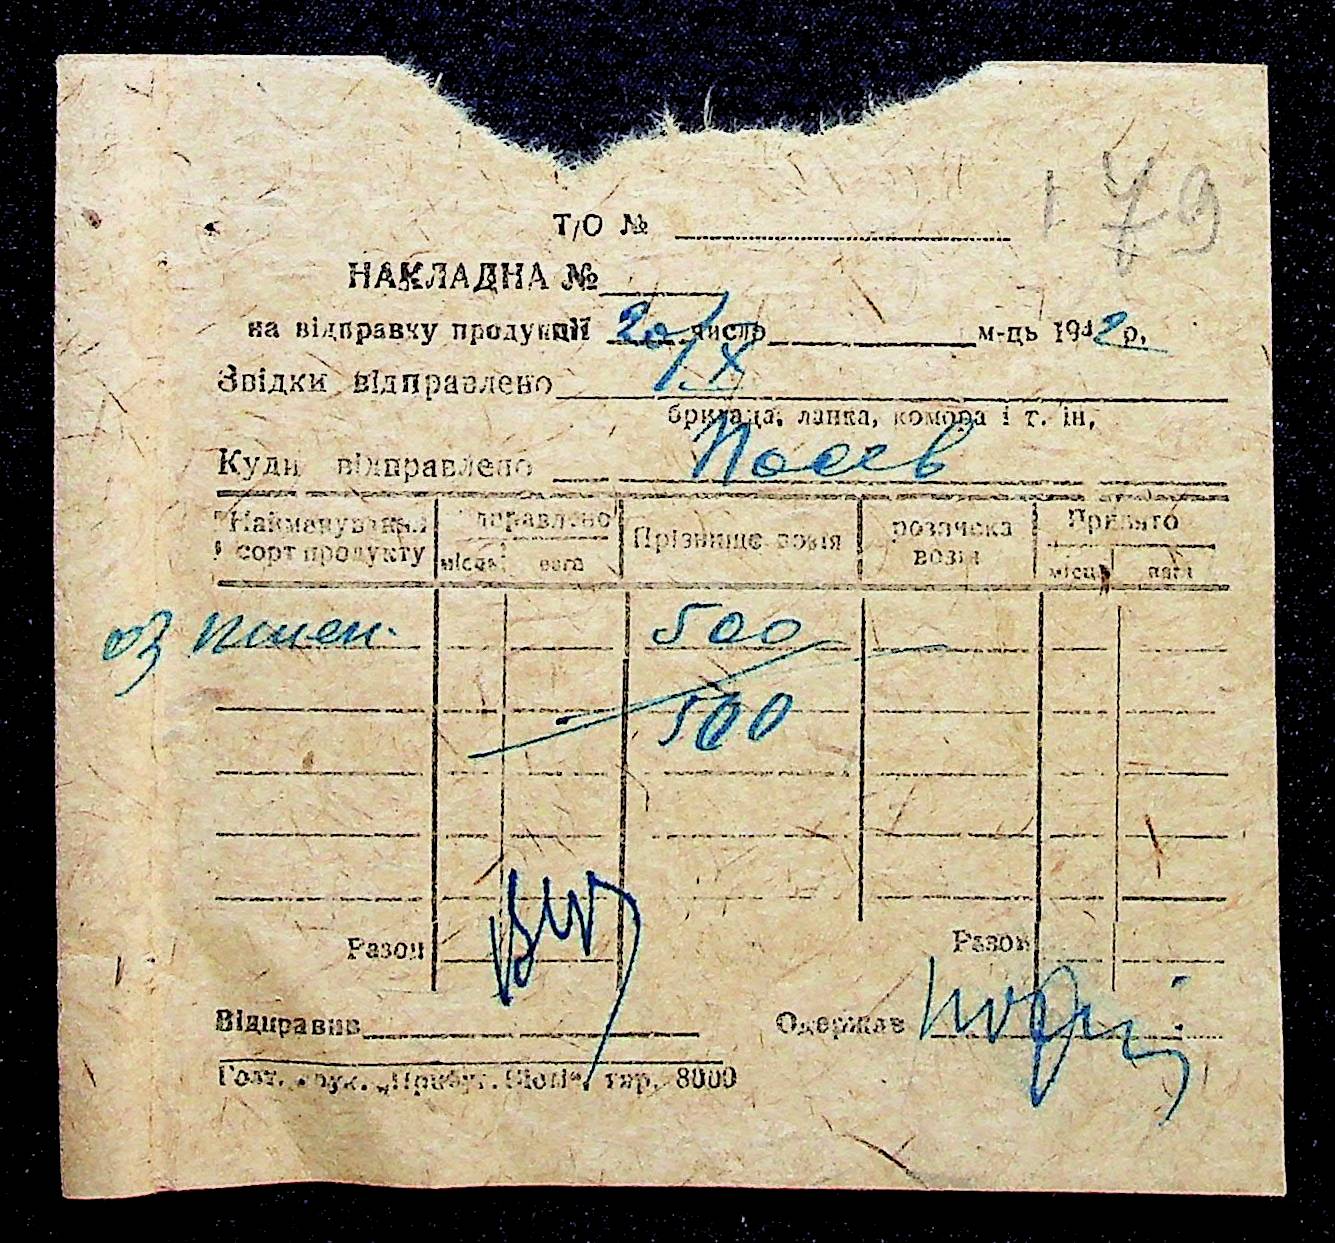 179
Т/О №
НАКЛАДНА №
на відправку продукції 20/X число м-ць 1942 р.
Звідки відправлено
бригада, ланка, комора і т. ін.
Куди відправлено Посів
Найменування сорт продукту
правлено
місць вага
Прізвище возія
розписка возія
Прийнято
місць вага
оз пшен. 500
500
Разом Разом
Відправив Одержав
Голт. друк. „Прибуг. тир. 8000